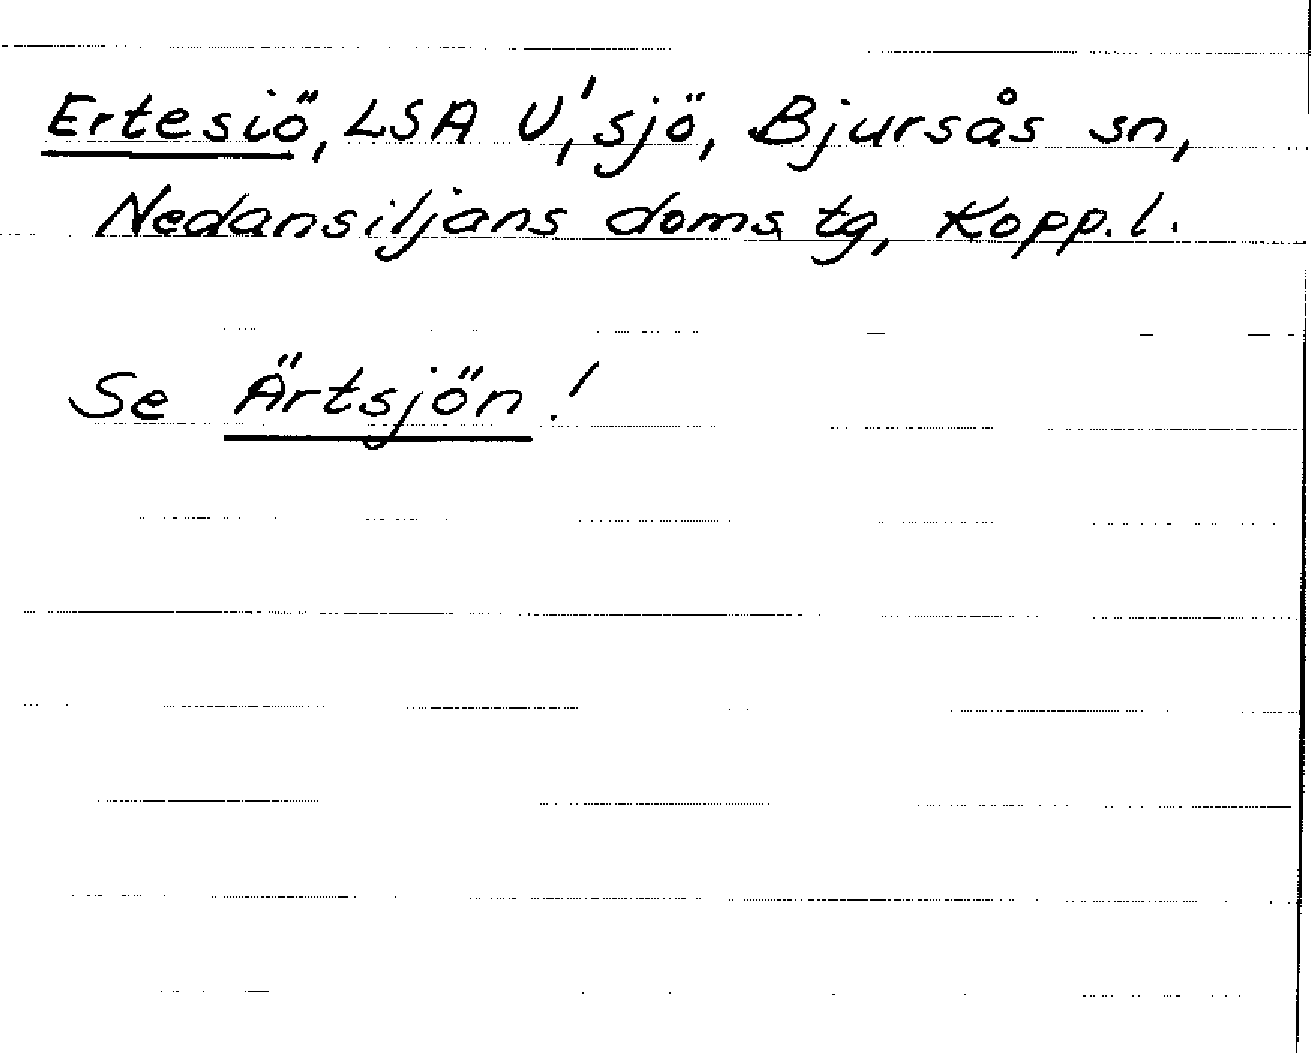 Ertesiö, LSA U', sjö, Bjursås sn,
Nedansiljans doms. tg, Kopp.l.
Se Ärtsjön!